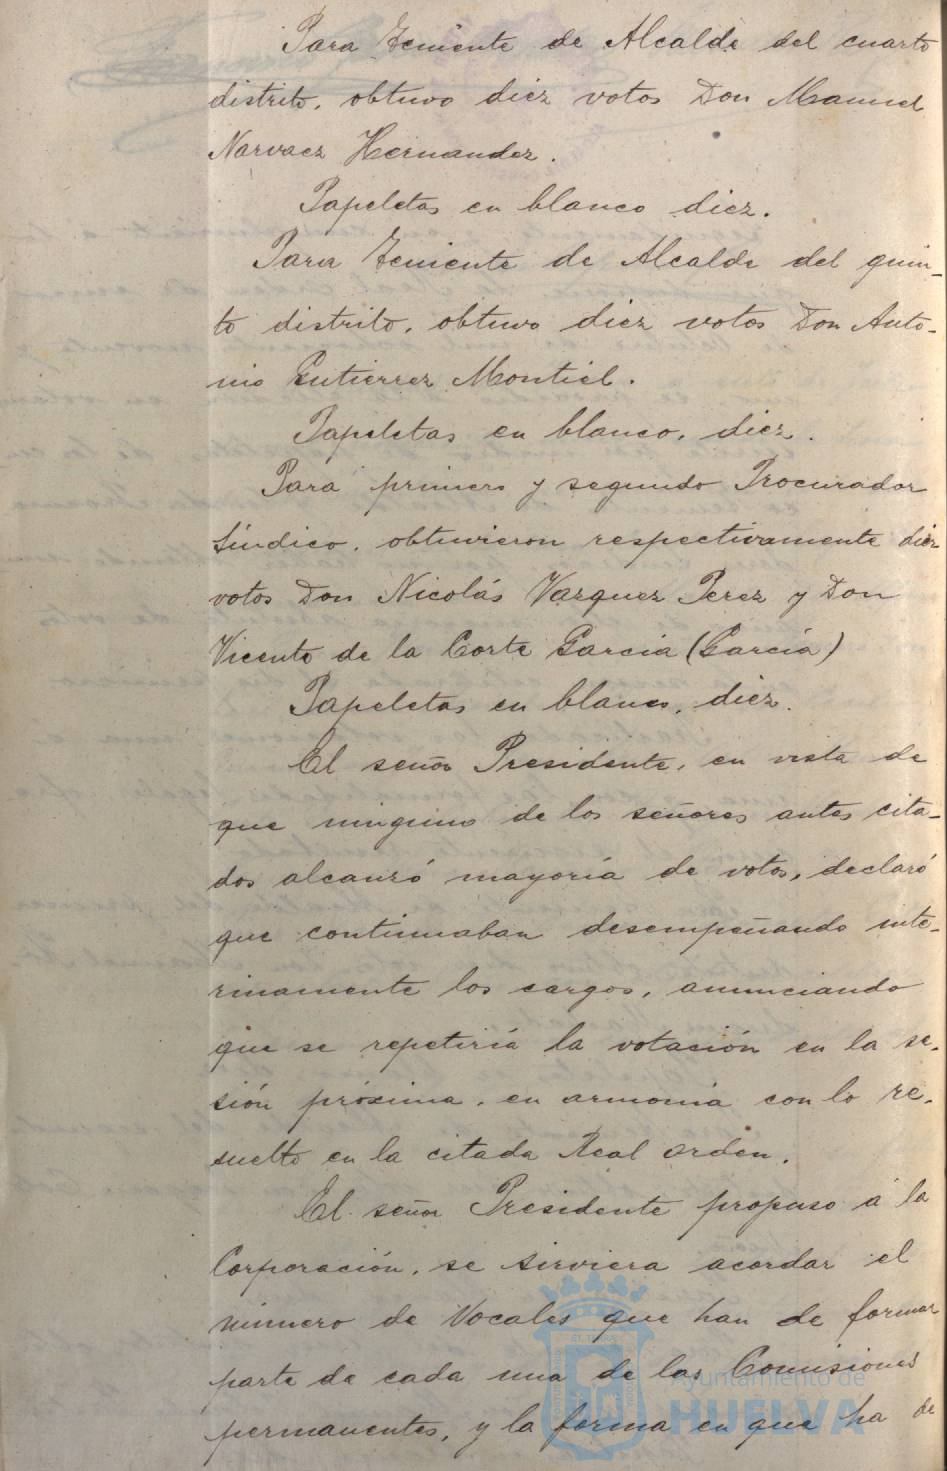 Para Teniente de Alcalde del cuarto
distrito, obtuvo diez votos Don Manuel
Narvaez Hernandez.
Papeletas en blanco diez.
Para Teniente de Alcalde del quin-
to distrito, obtuvo diez votos Don Anto-
nio Gutierrez Montiel.
Papeletas en blanco, diez.
Para primero y segundo Procurador
Síndico, obtuvieron respectivamente diez
votos Don Nicolás Vazquez Perez y Don
Vicente de la Corte Garcia (García)
Papeletas en blanco, diez.
El señor Presidente, en vista de
que ninguno de los señores antes cita-
dos alcanzó mayoría de votos, declaró
que continuaban desempeñando inte-
rinamente los cargos, anunciando
que se repetiría la votación en la se-
sión próxima, en armonía con lo re-
suelto en la citada Real orden.
El señor Presidente propuso á la
Corporación, se sirviera acordar el
número de Vocales que han de formar
parte de cada una de las Comisiones
permanentes, y la forma en que ha de
Ayuntamiento de
HUELVA